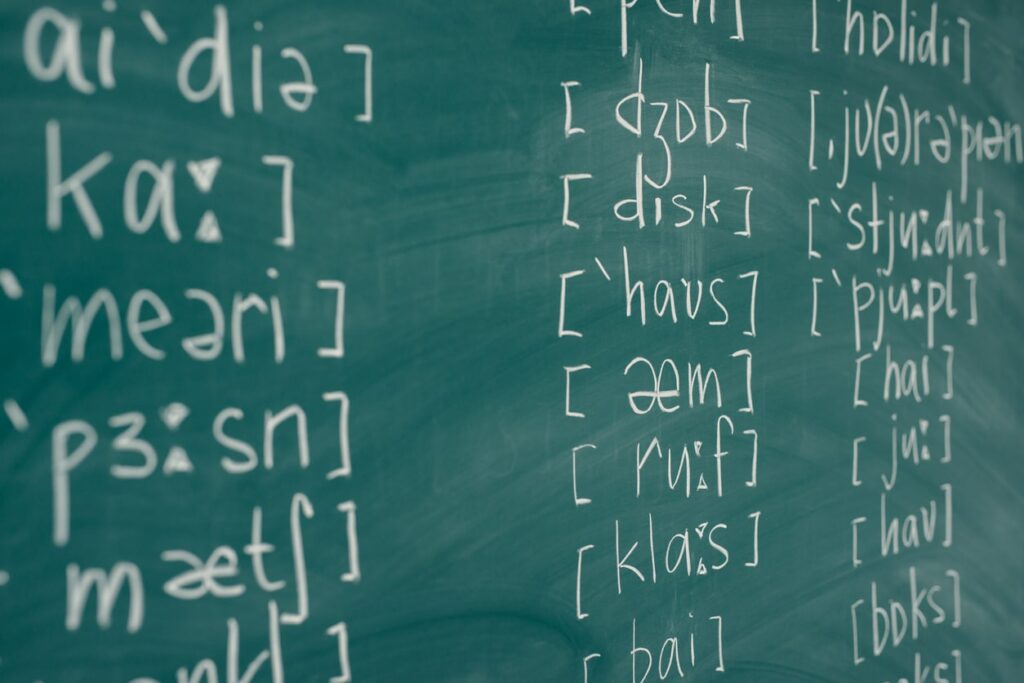 ai`diə]
kɑː]
`meəri]
`pɜːsn]
mætʃ]
[pen]
[dʒɒb]
[disk]
[`haʊs]
[æm]
[ruːf]
[klɑːs]
[bai]
[`hɒlidi]
[ˌjʊ(ə)rə`piən
[`stjuːdnt]
[`pjuːpl]
[hai]
[juː]
[hav]
[bɒks]